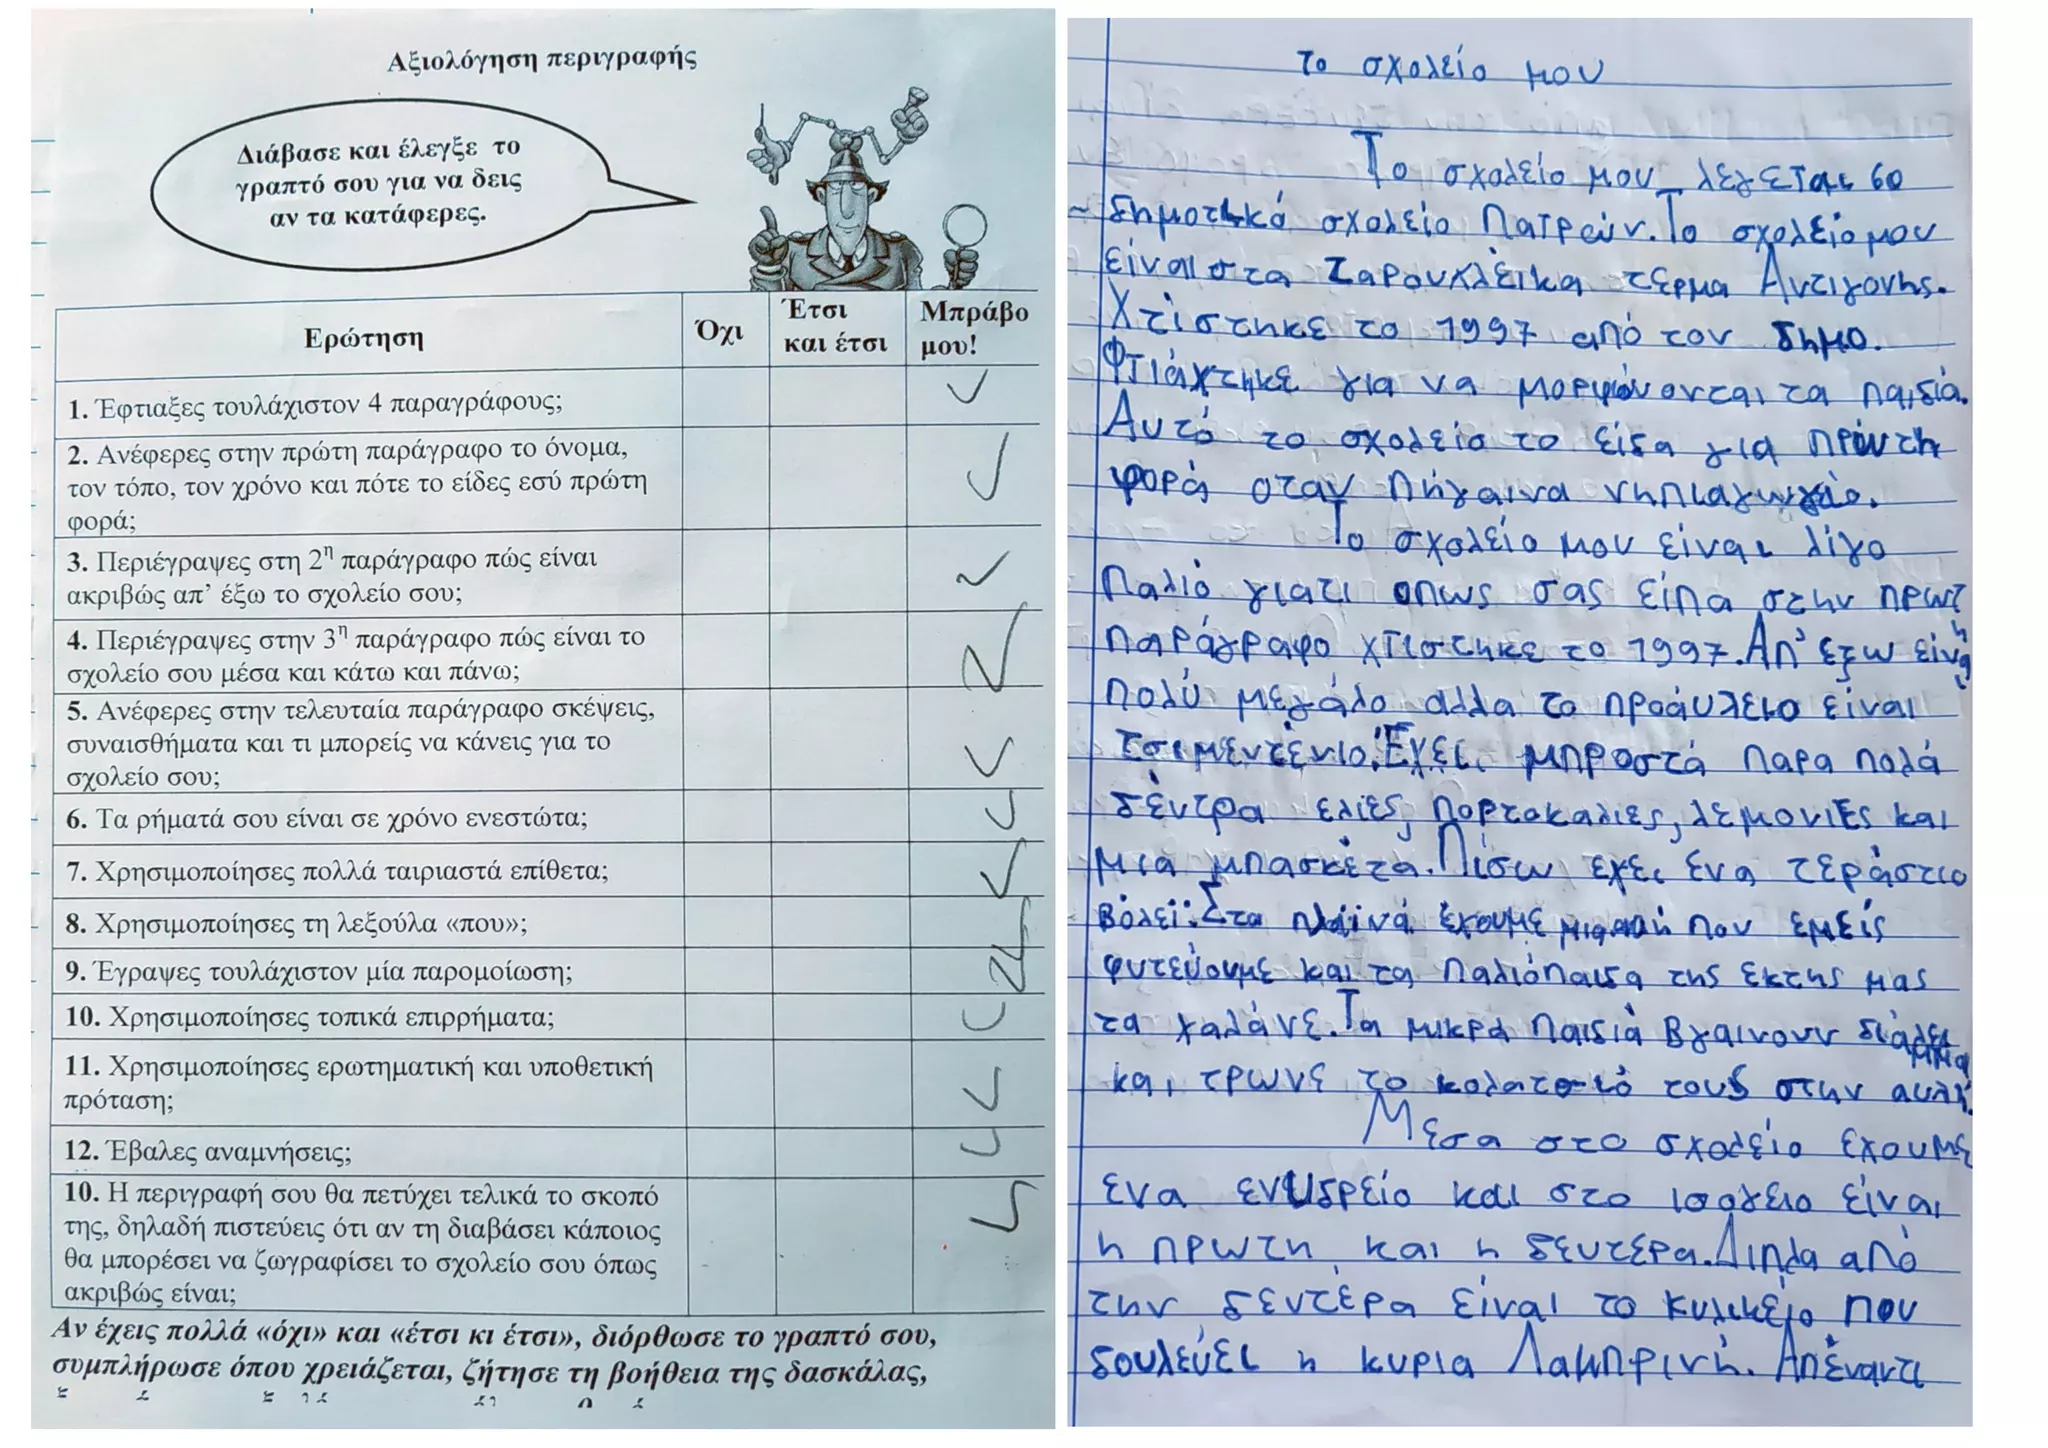 Αξιολόγηση περιγραφής
Διάβασε και έλεγξε το
γραπτό σου για να δεις
αν τα κατάφερες.
Ερώτηση
Όχι
Έτσι
και έτσι
Μπράβο
μου!
1. Έφτιαξες τουλάχιστον 4 παραγράφους;
2. Ανέφερες στην πρώτη παράγραφο το όνομα,
τον τόπο, τον χρόνο και πότε το είδες εσύ πρώτη
φορά;
3. Περιέγραψες στη 2η παράγραφο πώς είναι
ακριβώς απ’ έξω το σχολείο σου;
4. Περιέγραψες στην 3η παράγραφο πώς είναι το
σχολείο σου μέσα και κάτω και πάνω;
5. Ανέφερες στην τελευταία παράγραφο σκέψεις,
συναισθήματα και τι μπορείς να κάνεις για το
σχολείο σου;
6. Τα ρήματά σου είναι σε χρόνο ενεστώτα;
7. Χρησιμοποίησες πολλά ταιριαστά επίθετα;
8. Χρησιμοποίησες τη λεξούλα «που»;
9. Έγραψες τουλάχιστον μία παρομοίωση;
10. Χρησιμοποίησες τοπικά επιρρήματα;
11. Χρησιμοποίησες ερωτηματική και υποθετική
πρόταση;
12. Έβαλες αναμνήσεις;
10. Η περιγραφή σου θα πετύχει τελικά το σκοπό
της, δηλαδή πιστεύεις ότι αν τη διαβάσει κάποιος
θα μπορέσει να ζωγραφίσει το σχολείο σου όπως
ακριβώς είναι;
Αν έχεις πολλά «όχι» και «έτσι κι έτσι», διόρθωσε το γραπτό σου,
συμπλήρωσε όπου χρειάζεται, ζήτησε τη βοήθεια της δασκάλας,
το σχολείο μου
Το σχολείο μου λεγεται 60
δημοτικό σχολείο Πατρών. Το σχολείο μου
είναι στα Ταρουκλέικα τερμα Αντιγονης.
Χτίστηκε το 1997 από τον δημο.
Φτιάχτηκε για να μορφόνονται τα παιδιά.
Αυτό το σχολείο το είδα για πρώτη
φορά οταν πήγαινα νηπιαγωγείο.
Το σχολείο μου είναι λίγο
παλιό γιατι οπως σας είπα στην πρωτη
παράγραφο χτιστηκε το 1997. Απ' εξω είναι
πολύ μεγάλο αλλα το προάυλειο είναι
τσιμεντένιο. Έχει μπροστά παρα πολά
δέντρα ελιές, πορτοκαλιες, λεμονιες και
μια μπασκέτα. Πίσω εχει ενα τεράστιο
βόλεϊ. Στα πλαϊνά έχουμε μια αυλή που εμείς
φυτεύουμε και τα παλιόπαιδα της εκτης μας
τα χαλάνε. Τα μικρά παιδιά βγαινουν διάλειμμα
και τρωνε το κολατσιό τους στην αυλή.
Μεσα στο σχολείο εχουμε
ενα ενυδρείο και στο ισογειο είναι
η πρωτη και η δευτερα. Διπλα από
την δεντέρα είναι το κυλικείο που
δουλεύει η κυρια Λαμπρινή. Απέναντι